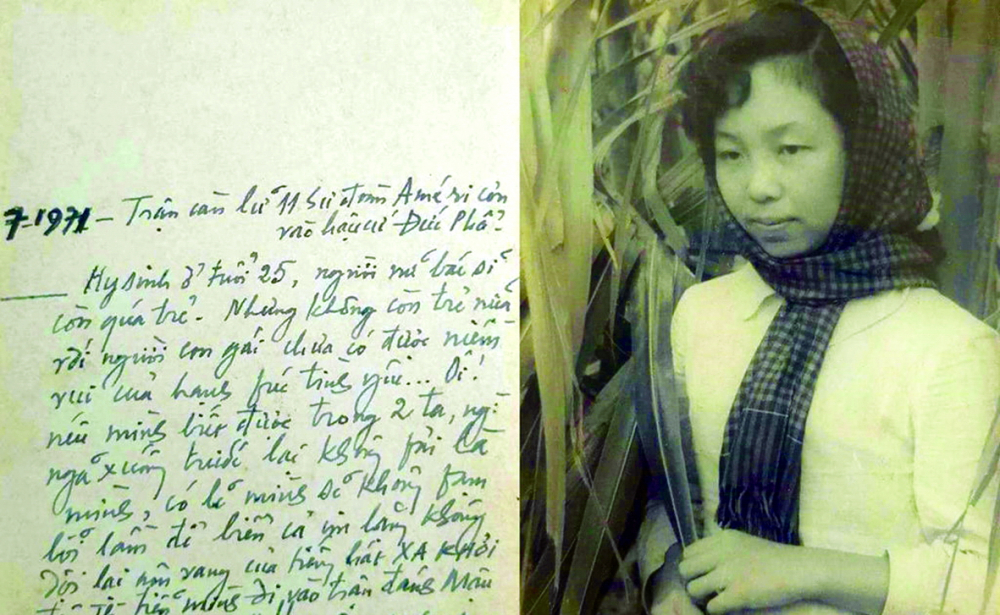 7-1971 – Trận càn lữ 11 Sư đoàn Améri côn
vào hậu cứ Đức Phổ.
Hy sinh ở tuổi 25, người nữ bác sĩ
còn quá trẻ. Nhưng không còn trẻ nữa
với người con gái chưa có được niềm
vui của hạnh fúc tình yêu... Ôi!
nếu mình biết được trong 2 ta,
ngã xuống trước lại không fải là
mình, có lẽ mình sẽ không fạm
lỗi lầm để biển cả im lặng không
dội lại âm vang của tiếng hát XA KHƠI
tiễn mình đi vào trận đánh Mậu